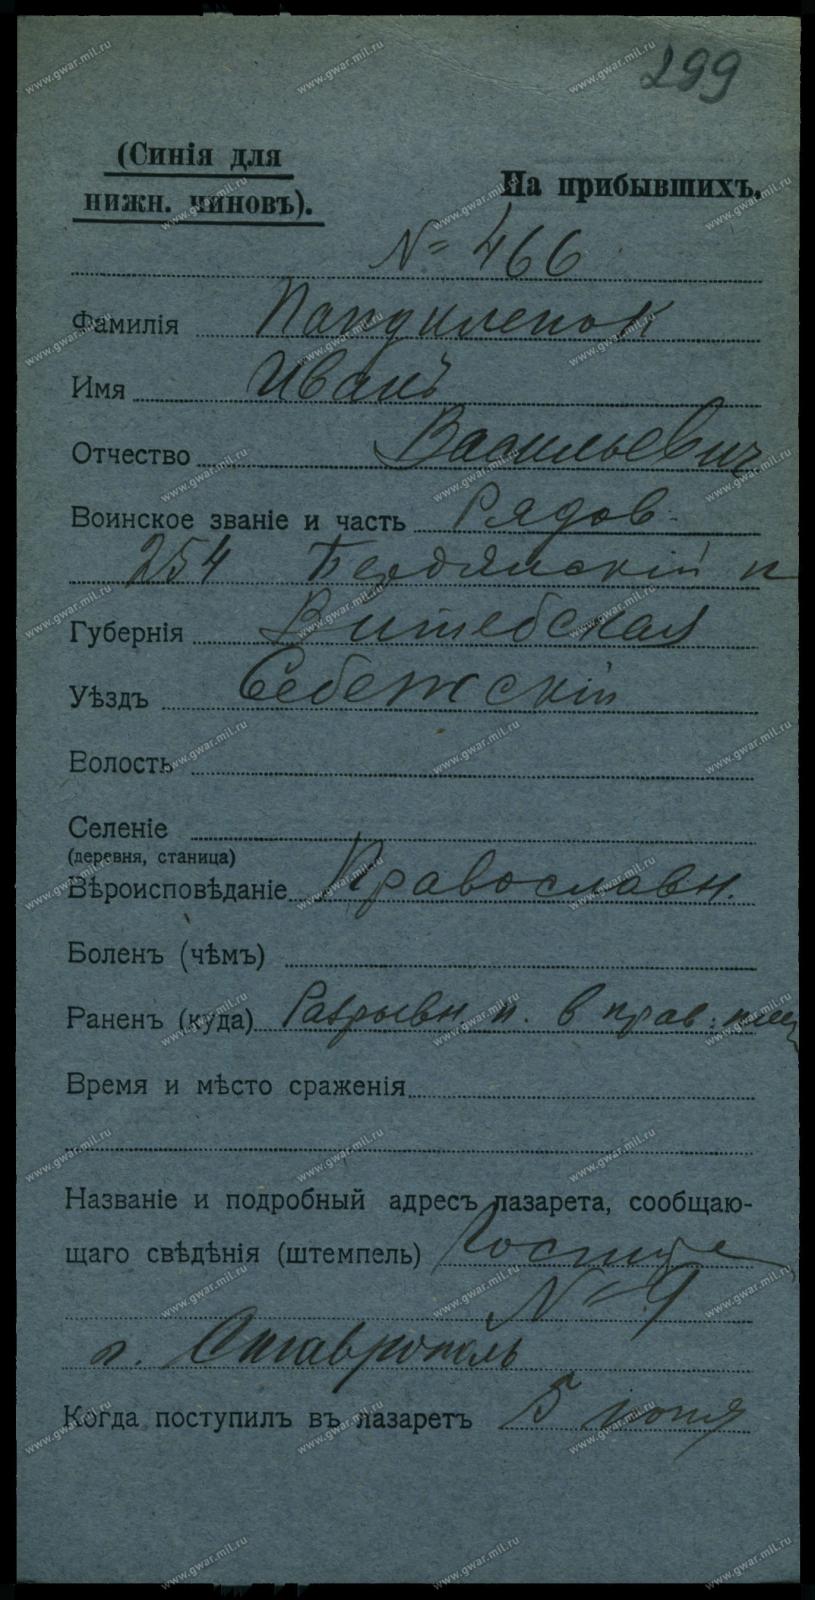 299
(Синія для
нижн. чиновъ).
На прибывшихъ.
№ 466
Фамилія
Имя Иванъ
Отчество Васильевич
Воинское званіе и часть Рядов.
254 п
Губернія Витебская
Уѣздъ Себежскій
Волость
Селеніе
(деревня, станица)
Вѣроисповѣданіе Православн.
Боленъ (чѣмъ)
Раненъ (куда) Разрывн. п. в прав:
Время и мѣсто сраженія
Названіе и подробный адресъ лазарета, сообщаю-
щаго свѣдѣнія (штемпель)
№ 9
г. Ставрополь
Когда поступилъ въ лазаретъ 5 июня
www.gwar.mil.ru